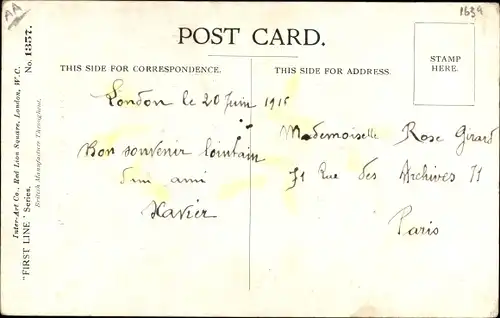 AA
1639
POST CARD.
THIS SIDE FOR CORRESPONDENCE.
THIS SIDE FOR ADDRESS.
STAMP
HERE.
London le 20 Juin 1916
Bon souvenir lointain
d'un ami
Xavier
Mademoiselle Rose Girard
71 Rue des Archives 71
Paris
Inter-Art Co., Red Lion Square, London, W.C.
British Manufacture Throughout.
"FIRST LINE" Series. No. 1357.